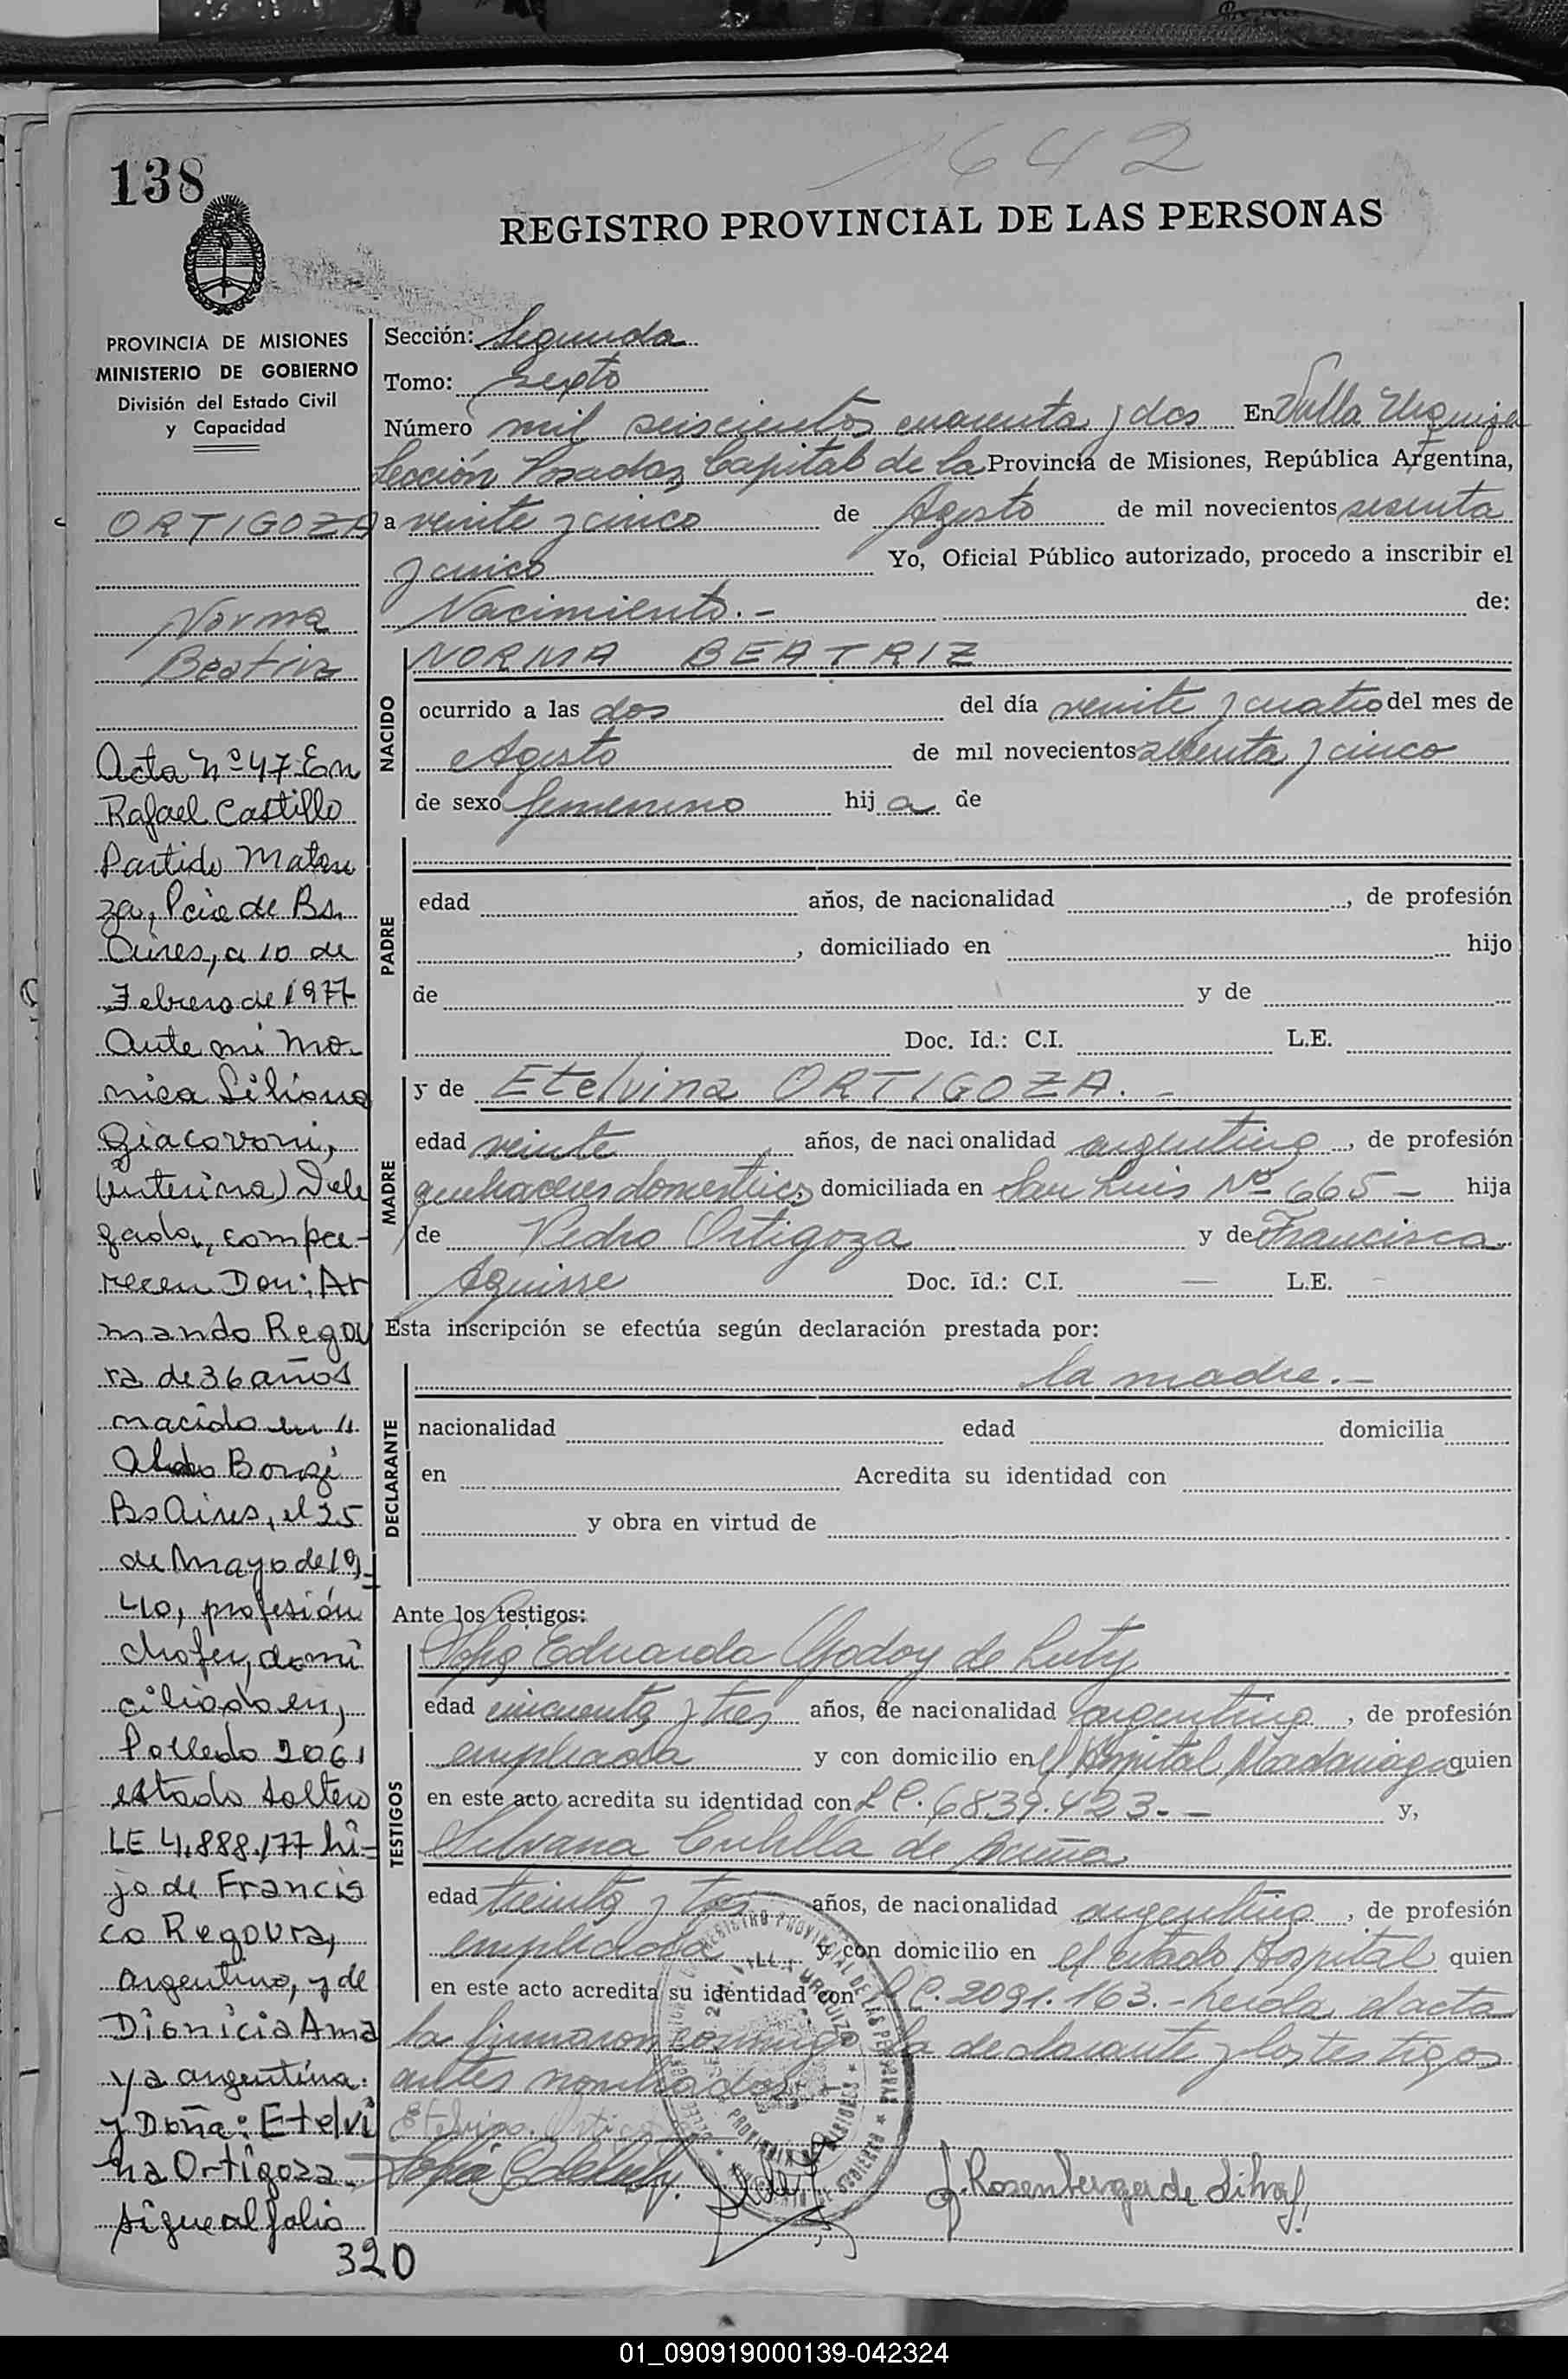 1642
138
REGISTRO PROVINCIAL DE LAS PERSONAS
PROVINCIA DE MISIONES
MINISTERIO DE GOBIERNO
División del Estado Civil
y Capacidad
ORTIGOZA
Norma
Beatriz
Acta Nº 47 En
Rafael Castillo
Partido Matan
za, Pcia de Bs.
Aires, a 10 de
Febrero de 1977
Ante mi Mo-
nica Liliana
Giacovoni,
(interina) Dele
gada, compa-
recen Don: Ar
mando Regou
ra de 36 años
nacido en
Aldo Bonzi
Bs Aires, el 25
de Mayo de 19-
40, profesión
chofer, domi
ciliado en,
Polledo 2061
estado soltero
LE 4.888.177 hi-
jo de Francis
co Regoura,
argentino, y de
Dionicia Ama
ya argentina.
y Doña: Etelvi
na Ortigoza.
sigue al folio
320
Sección: Segunda
Tomo: sexto
Número mil seiscientos cuarenta y dos En Villa Urquiza
Sección Posadas, Capital de la Provincia de Misiones, República Argentina,
a veinte y cinco de Agosto de mil novecientos sesenta
y cinco Yo, Oficial Público autorizado, procedo a inscribir el
Nacimiento.- de:
NACIDO
NORMA BEATRIZ
ocurrido a las dos del día veinte y cuatro del mes de
Agosto de mil novecientos sesenta y cinco
de sexo femenino hija de
PADRE
edad años, de nacionalidad , de profesión
, domiciliado en hijo
de y de
Doc. Id.: C.I. L.E.
MADRE
y de Etelvina ORTIGOZA.-
edad veinte años, de nacionalidad argentina, de profesión
quehaceres domesticos domiciliada en San Luis Nº 665- hija
de Pedro Ortigoza y de Francisca
Aguirre Doc. Id.: C.I. — L.E.
Esta inscripción se efectúa según declaración prestada por:
DECLARANTE
la madre.-
nacionalidad edad domicilia
en Acredita su identidad con
y obra en virtud de
Ante los testigos:
TESTIGOS
Sofia Eduarda Godoy de Luty
edad cincuenta y tres años, de nacionalidad argentina, de profesión
empleada y con domicilio en el Hospital Madariaga quien
en este acto acredita su identidad con L C. 6839.423.- y,
Silvana de
edad treinta y tres años, de nacionalidad argentina, de profesión
empleada y con domicilio en el citado Hospital quien
en este acto acredita su identidad con L C. 2091.163.- Leida el acta
la firmaron conmigo la declarante y los testigos
antes nombrados
Etelvina Ortigoza
Sofia G de Luty.
J. Rosenberger de Silva
REGISTRO PROVINCIAL DE LAS PERSONAS
VILLA URQUIZA
01_090919000139-042324